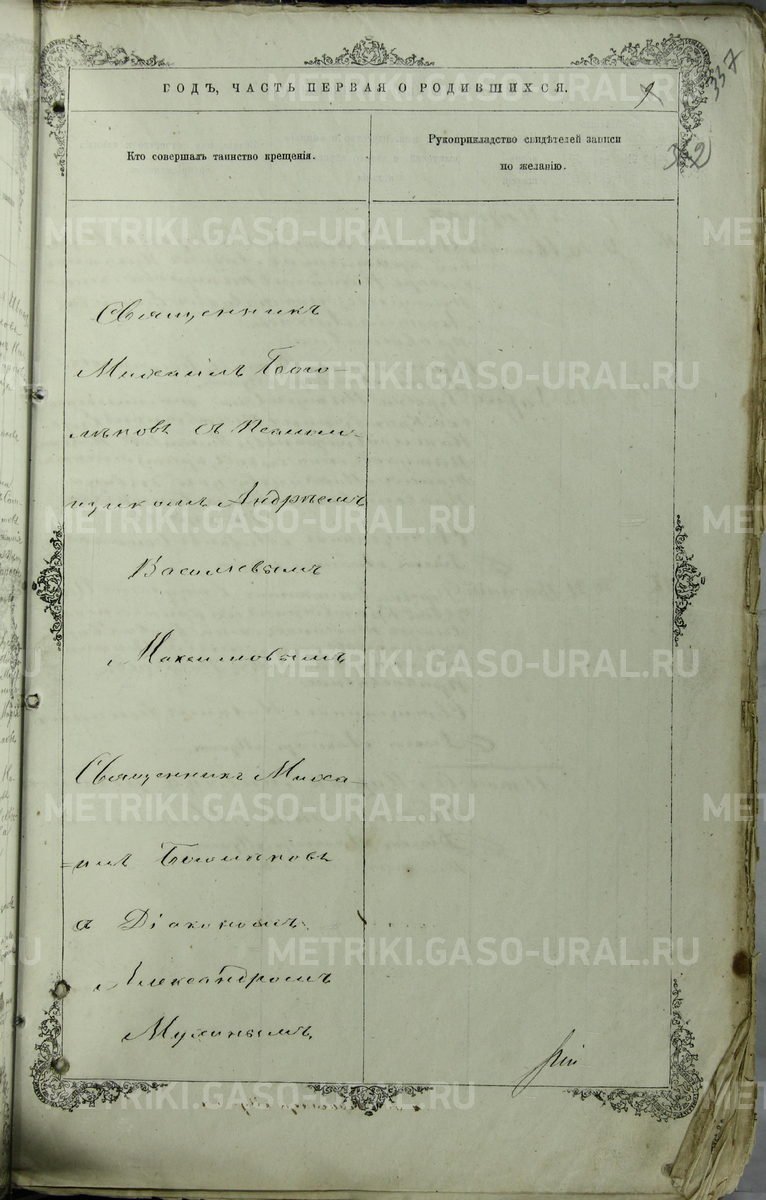 ГОДЪ, ЧАСТЬ ПЕРВАЯ О РОДИВШИХСЯ.
9
337
32
Кто совершалъ таинство крещенія.
Рукоприкладство свидѣтелей записи
по желанію.
Священникъ
Михаилъ Бого-
мѣковъ съ Псалом-
щикомъ Андреемъ
Васильевымъ
Максимовымъ
Священникъ Миха
=илъ
съ Діакономъ
Александромъ
Мухинымъ
METRIKI.GASO-URAL.RU